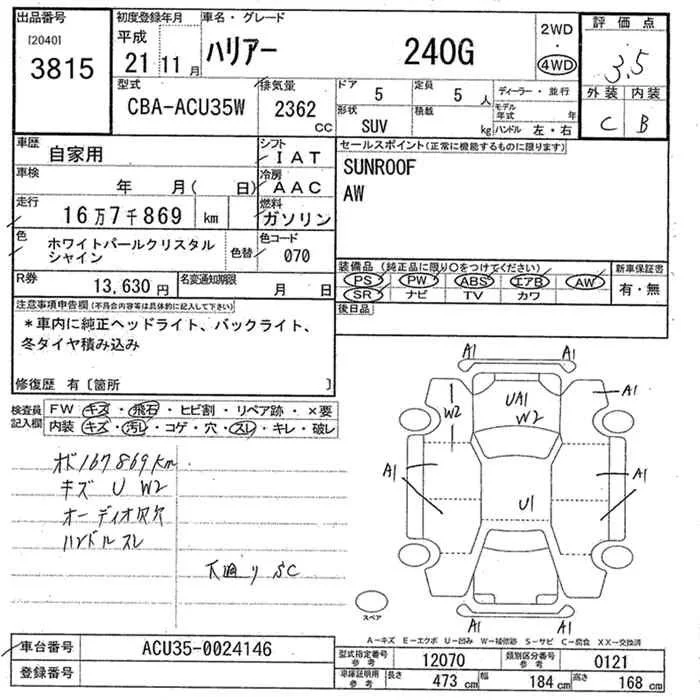 出品番号
[2040]
3815
初度登録年月
平成
21 11月
車名・グレード
ハリアー 240G
2WD
・
4WD
評価点
3.5
外装 内装
C B
型式
CBA-ACU35W
排気量
2362
CC
ドア
5
定員
5 人
形状
SUV
積載
kg
ディーラー・並行
モデル年式 年
ハンドル 左・右
車歴
自家用
シフト
IAT
車検
年 月( 日)
冷房
AAC
走行
16万7千869 km
燃料
ガソリン
色
ホワイトパールクリスタル
シャイン
色替
色コード
070
R券
13,630 円
名変通知期限
月 日
セールスポイント(正常に機能するものに限ります)
SUNROOF
AW
装備品(純正品に限り○をつけてください)
PS PW ABS エアB AW
SR ナビ TV カワ
新車保証書
有・無
後日品
注意事項申告欄(不具合内容等は具体的に記入して下さい)
*車内に純正ヘッドライト、バックライト、
冬タイヤ積み込み
修復歴 有〔箇所 〕
検査員
記入欄
FW キズ・飛石・ヒビ割・リペア跡・×要
内装 キズ・汚レ・コゲ・穴・スレ・キレ・破レ
167869km
キズ U W2
オーディオ欠
ハンドルスレ
下廻り SC
A1 A1
A1
W2
UA1
W2
A1 A1
U1
A1 A1
スペア
A-キズ E-エクボ U-凹み W-補修跡 S-サビ C-腐食 XX-交換済
車台番号
ACU35-0024146
登録番号
型式指定番号
参考
12070
類別区分番号
参考
0121
車庫証明用
参考
長さ 473 cm 幅 184 cm 高さ 168 cm